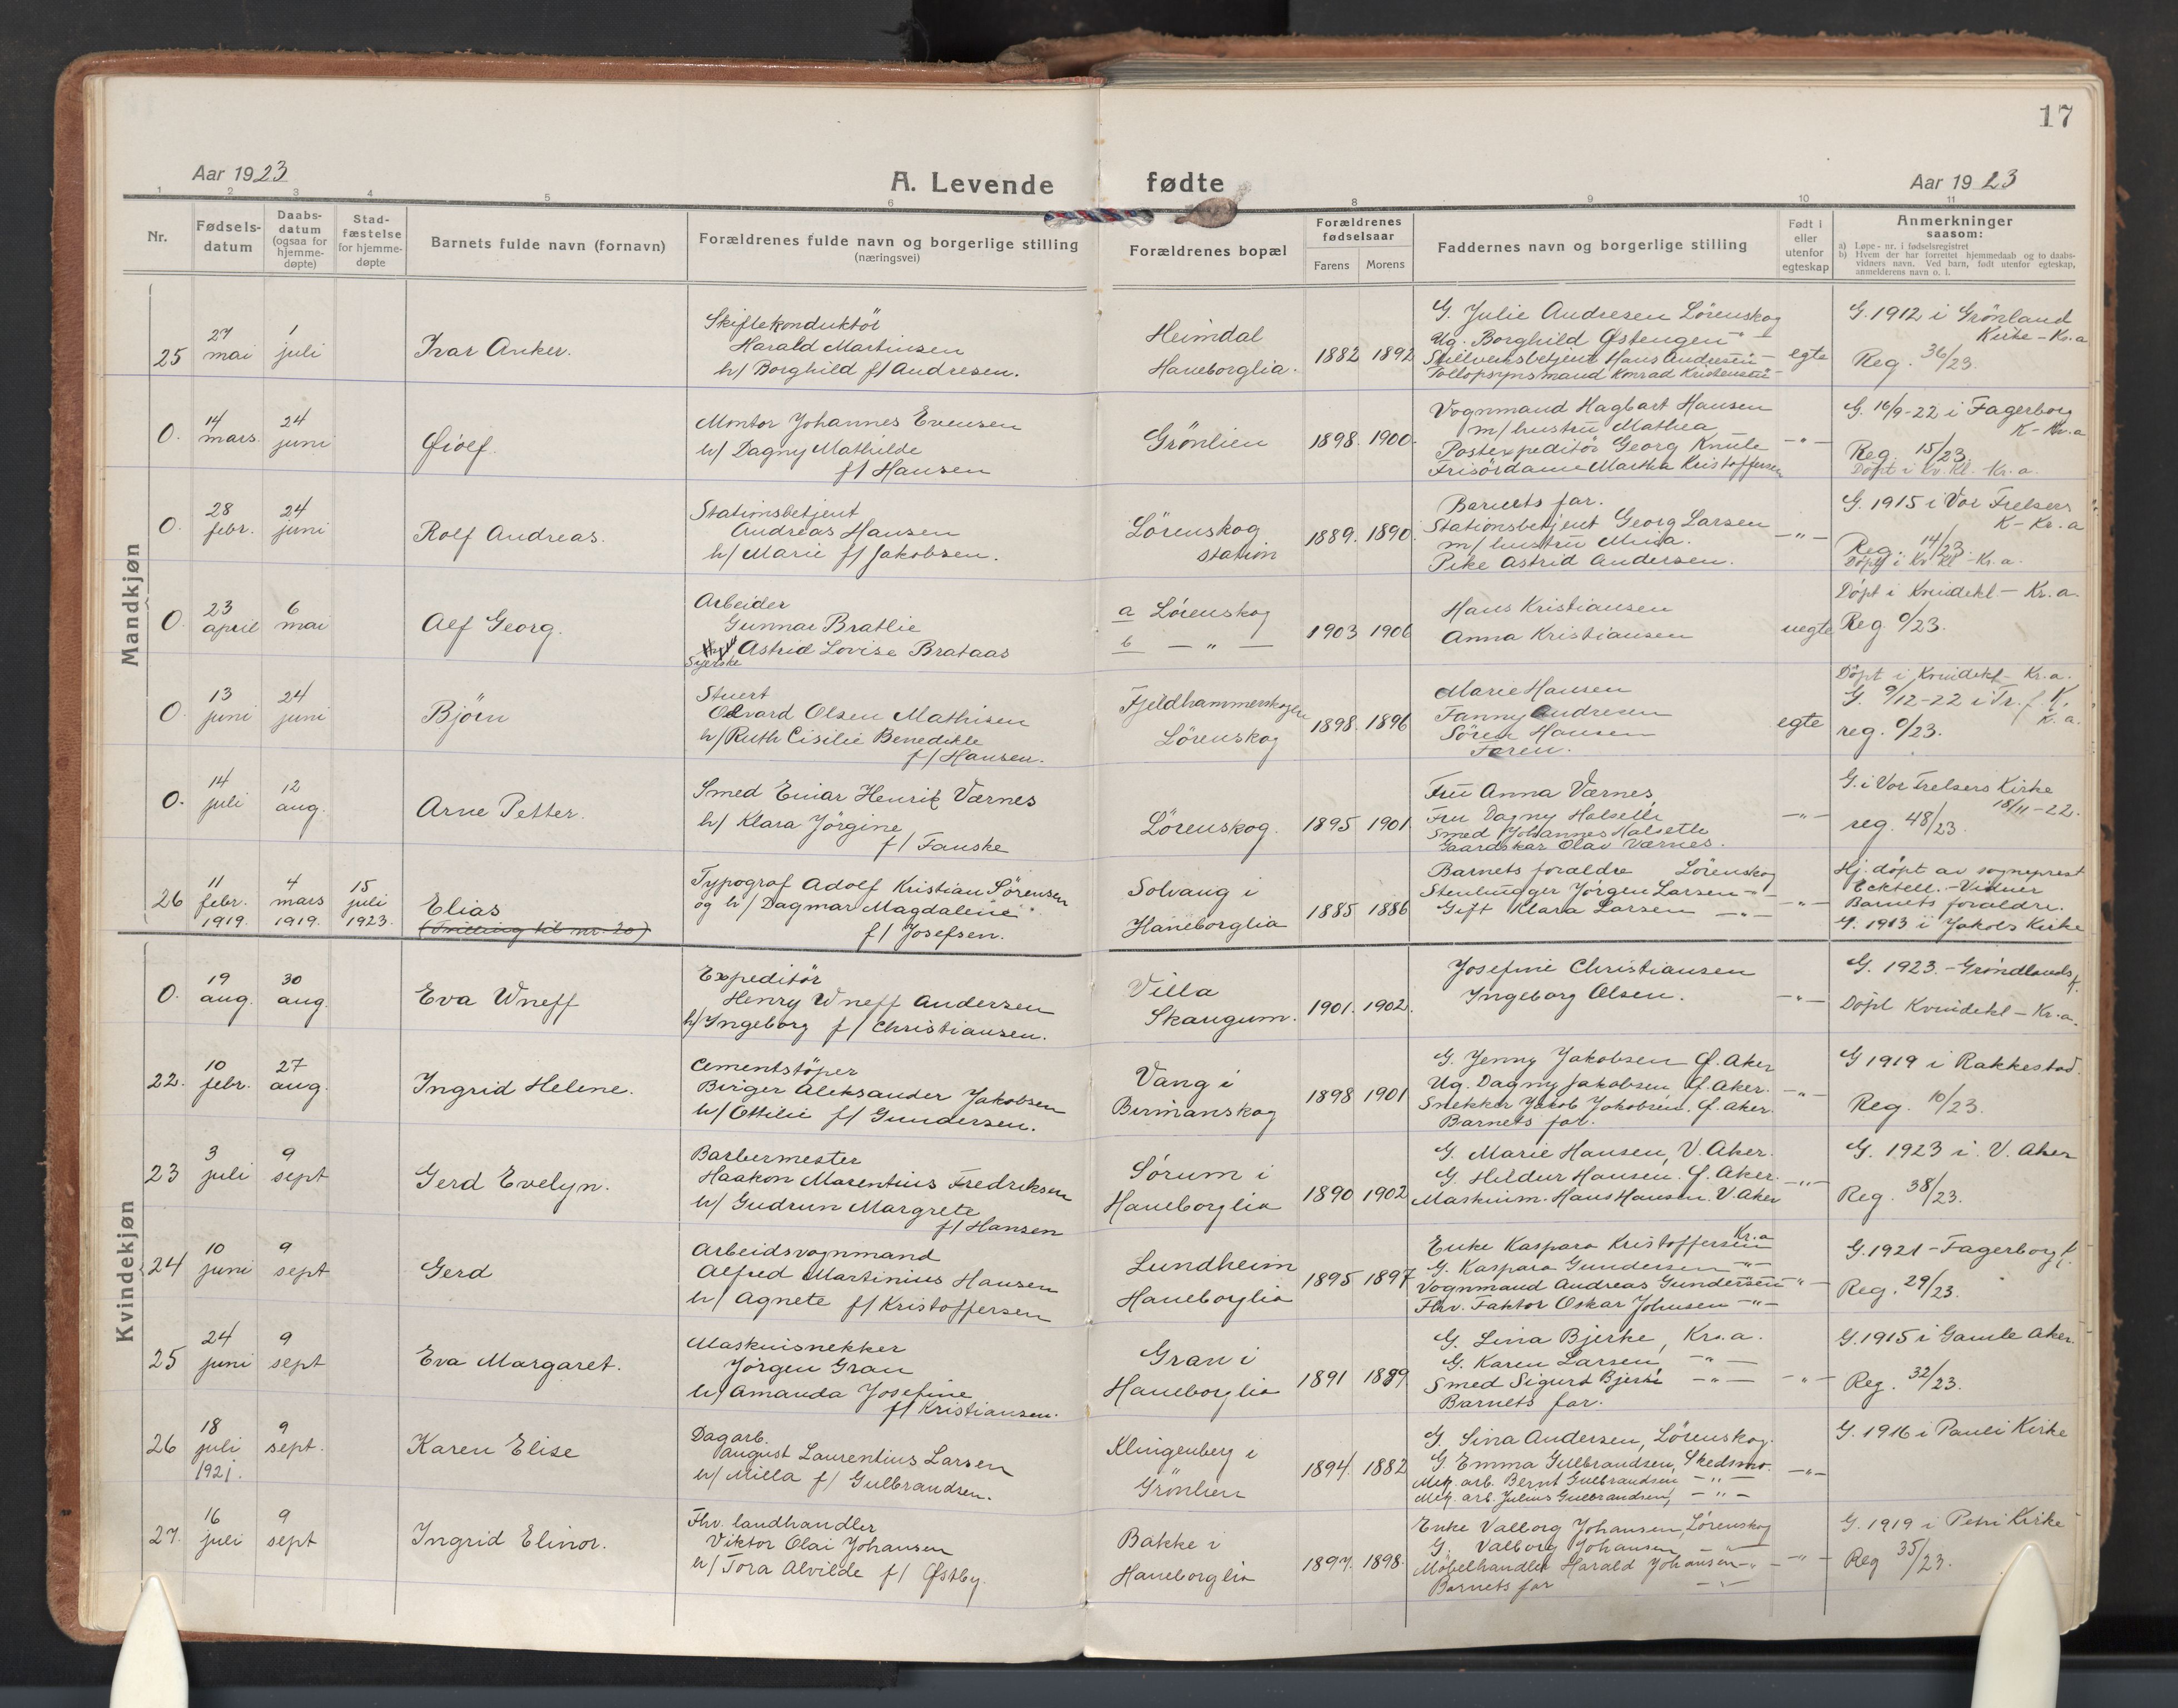 17
Aar 1923
A. Levende fødte
Aar 1923
1 2 3 4 5 6 8 9 10 11
Nr.
Fødsels-
datum
Daabs-
datum
(ogsaa for
hjemme-
døpte)
Stad-
fæstelse
for hjemme-
døpte
Barnets fulde navn (fornavn)
Forældrenes fulde navn og borgerlige stilling
(næringsvei)
Forældrenes bopæl
Forældrenes
fødselsaar
Farens Morens
Faddernes navn og borgerlige stilling
Født i
eller
utenfor
egteskap
Anmerkninger
saasom:
a) Løpe-nr. i fødselsregistret
b) Hvem der har forrettet hjemmedaab og to daabs-
vidners navn. Ved barn, født utenfor egteskap,
anmelderens navn o. l.
Mandkjøn
25
27
mai
1
juli
Ivar Anker.
Skiftekonduktör
Harald Martinsen
h/ Borghild f/ Andresen.
Heimdal
Haneborglia.
1882 1892
G. Julie Andresen Lörenskog
Ug. Borghild Østengen -"-
Stillverksbetjent Hans Andresen -"-
Tollopsynsmand Konrad Kristensen -"-
egte
G. 1912 i Grønland
Kirke - Kr.a
Reg. 36/23.
0.
14
mars
24
juni
Øiolf.
Montör Johannes Evensen
h/ Dagny Mathilde
f/ Hansen
Grönlien
1898. 1900.
Vognmand Hagbart Hansen
m/ hustru Mathea
Postexpeditör Georg Knutle
Frisördame Martha Kristoffersen
-"-
G. 16/9-22 i Fagerborg
K - Kr.a
Reg. 15/23.
Döpt i Kv. Kl. Kr.a.
0.
28
febr.
24
juni
Rolf Andreas.
Stationsbetjent
Andreas Hansen
h/ Marie f/ Jakobsen.
Lörenskog
station
1889. 1890.
Barnets far.
Stationsbetjent Georg Larsen
m/ hustru Mina.
Pike Astrid Andersen.
-"-
G. 1915 i Vor Frelsers
K - Kr.a
Reg. 14/23.
Döpt i Kv Kl - Kr.a.
0.
23
april
6
mai
Alf Georg.
Arbeider
Gunnar Bratlie
Astrid Lovise Brataas
Syerske
a Lörenskog
b - " -
1903 1906
Hans Kristiansen
Anna Kristiansen
uegte
Döpt i Kvindekl - Kr.a.
Reg 0/23.
0.
13
juni
24
juni
Björn
Stuert
Edvard Olsen Mathisen
h/ Ruth Cisilie Benedikte
f/ Hansen.
Fjeldhammerskogen
Lörenskog
1898. 1896
Marie Hansen
Fanny Andresen
Sören Hansen
Faren.
egte
Döpt i Kvindekl - Kr.a.
G. 9/12-22 i Tr. f. K.
K.a.
reg. 0/23.
0.
14
juli
12
aug.
Arne Petter.
Smed Einar Henrik Værnes
h/ Klara Jörgine
f/ Fauske
Lörenskog.
1895 1901
Fru Anna Værnes
Fru Dagny Halsetle
Smed Johannes Halsetle
Gaardskar Olav Værnes.
-"-
G. i Vor Frelsers Kirke
18/11-22.
reg. 48/23.
26
11
febr.
1919.
4
mars
1919.
15
juli
1923.
Elias
(Trilling til nr. 20)
Typograf Adolf Kristian Sörensen
og h/ Dagmar Magdalene
f/ Josefsen.
Solvang i
Haneborglia
1885 1886
Barnets foraldre Lörenskog
Stenhugger Jörgen Larsen -"-
Gift Klara Larsen -"-
-"-
Hj. döpt av sogneprest
Ecktell. - Vidner
Barnets foraldre.
G. 1913 i Jakobs Kirke
Kvindekjøn
0.
19
aug.
30
aug.
Eva Wneff
Expeditör
Henry Wneff Andersen
h/ Ingeborg f/ Christiansen.
Villa
Skaugum.
1901. 1902.
Josefine Christiansen
Ingeborg Olsen.
-"-
G. 1923. - Gröndlands K.
Döpt Kvindekl - Kr.a.
22.
10
febr.
27
aug.
Ingrid Helene.
Cementstöper
Birger Aleksander Jakobsen
h/ Ottilie f/ Gundersen.
Vang i
Birmanskog
1898 1901
G. Jenny Jakobsen Ø. Aker
Ug. Dagny Jakobsen Ø. Aker.
Snekker Jakob Jakobsen. Ø. Aker.
Barnets far.
-"-
G 1919 i Rakkestad.
Reg. 10/23.
23
3
juli
9
sept
Gerd Evelyn.
Barbermester
Haakon Marentius Fredriksen
h/ Gudrun Margrete
f/ Hansen
Sörum i
Haneborglia
1890 1902
G. Marie Hansen, V. Aker.
G. Hildur Hansen. Ø. Aker.
Maskinm. Hans Hansen. V. Aker
-"-
G. 1923 i. V. Aker
Reg. 38/23.
24
10
juni
9
sept
Gerd
Arbeidsvognmand
Alfred Martinius Hansen
h/ Agnete f/ Kristoffersen
Lundheim
Haneborglia
1895 1897
Enke Kaspara Kristoffersen Kr.a
G. Kaspara Gundersen -"-
Vognmand Andreas Gundersen
Fhv. Faktor Oskar Johnsen -"-
-"-
G. 1921 - Fagerborg k.
Reg. 29/23.
25
24
juni
9
sept
Eva Margaret.
Maskinsnekker
Jörgen Gran
h/ Amanda Josefine
f/ Kristiansen.
Gran i
Haneborglia
1891 1889
G. Lina Bjerke, Kr.a.
G. Karen Larsen, -"-
Smed Sigurd Bjerke -"-
Barnets far.
-"-
G. 1915 i Gamle Aker.
Reg. 32/23.
26
18
juli
1921.
9
sept.
Karen Elise
Dagarb.
August Laurentius Larsen
h/ Milla f/ Gulbrandsen.
Klingenberg i
Grönlien
1894. 1882
G. Sina Andersen, Lörenskog.
G. Emma Gulbrandsen, Skedsmo.
Mek. arb. Bernt Gulbrandsen -"-
Mek. arb. Julius Gulbrandsen, -"-
-"-
G. 1916 i Pauli Kirke
27.
16
juli
9
sept
Ingrid Elinor.
Fhv. landhandler
Viktor Olai Johansen
h/ Tora Alvilde f/ Østby.
Bakke i
Haneborglia
1897. 1898.
Enke Valborg Johansen, Lörenskog
G. Valborg Johansen -"-
Möbelhandler Harald Johansen -"-
Barnets far -"-
-"-
G. 1919 i Petri Kirke
Reg 35/23.